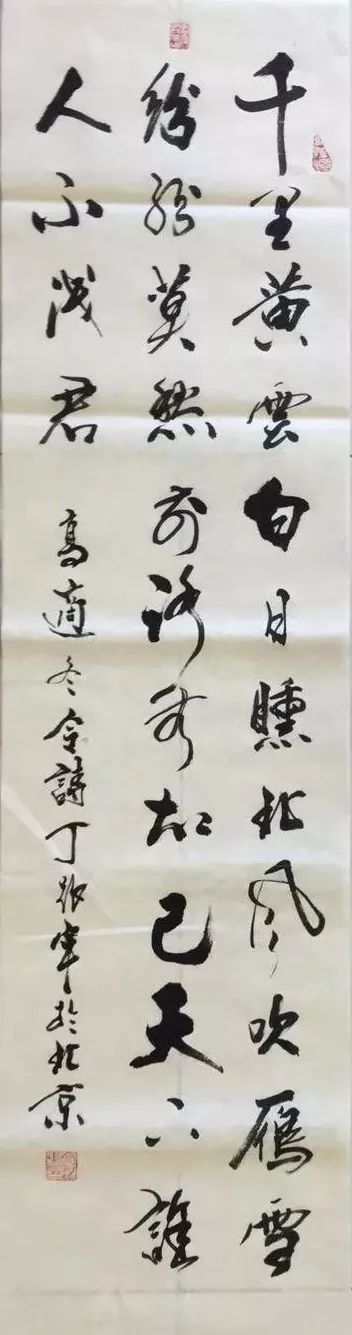 千里黄雲白日曛北風吹雁雪
紛紛莫愁前路無知己天下誰
人不識君
高適冬令詩丁軍於北京